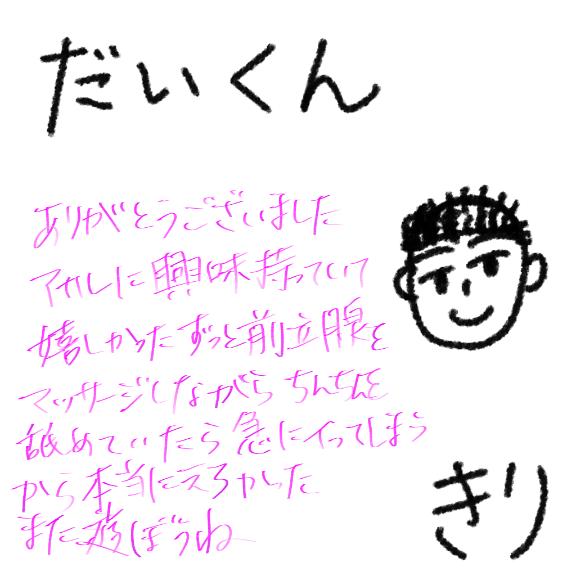 だいくん
ありがとうございました
アナルに興味持っていて
嬉しかったずっと前立腺を
マッサージしながらちんちんを
舐めていたら急にイってしまう
から本当にえろかった
また遊ぼうね
きり